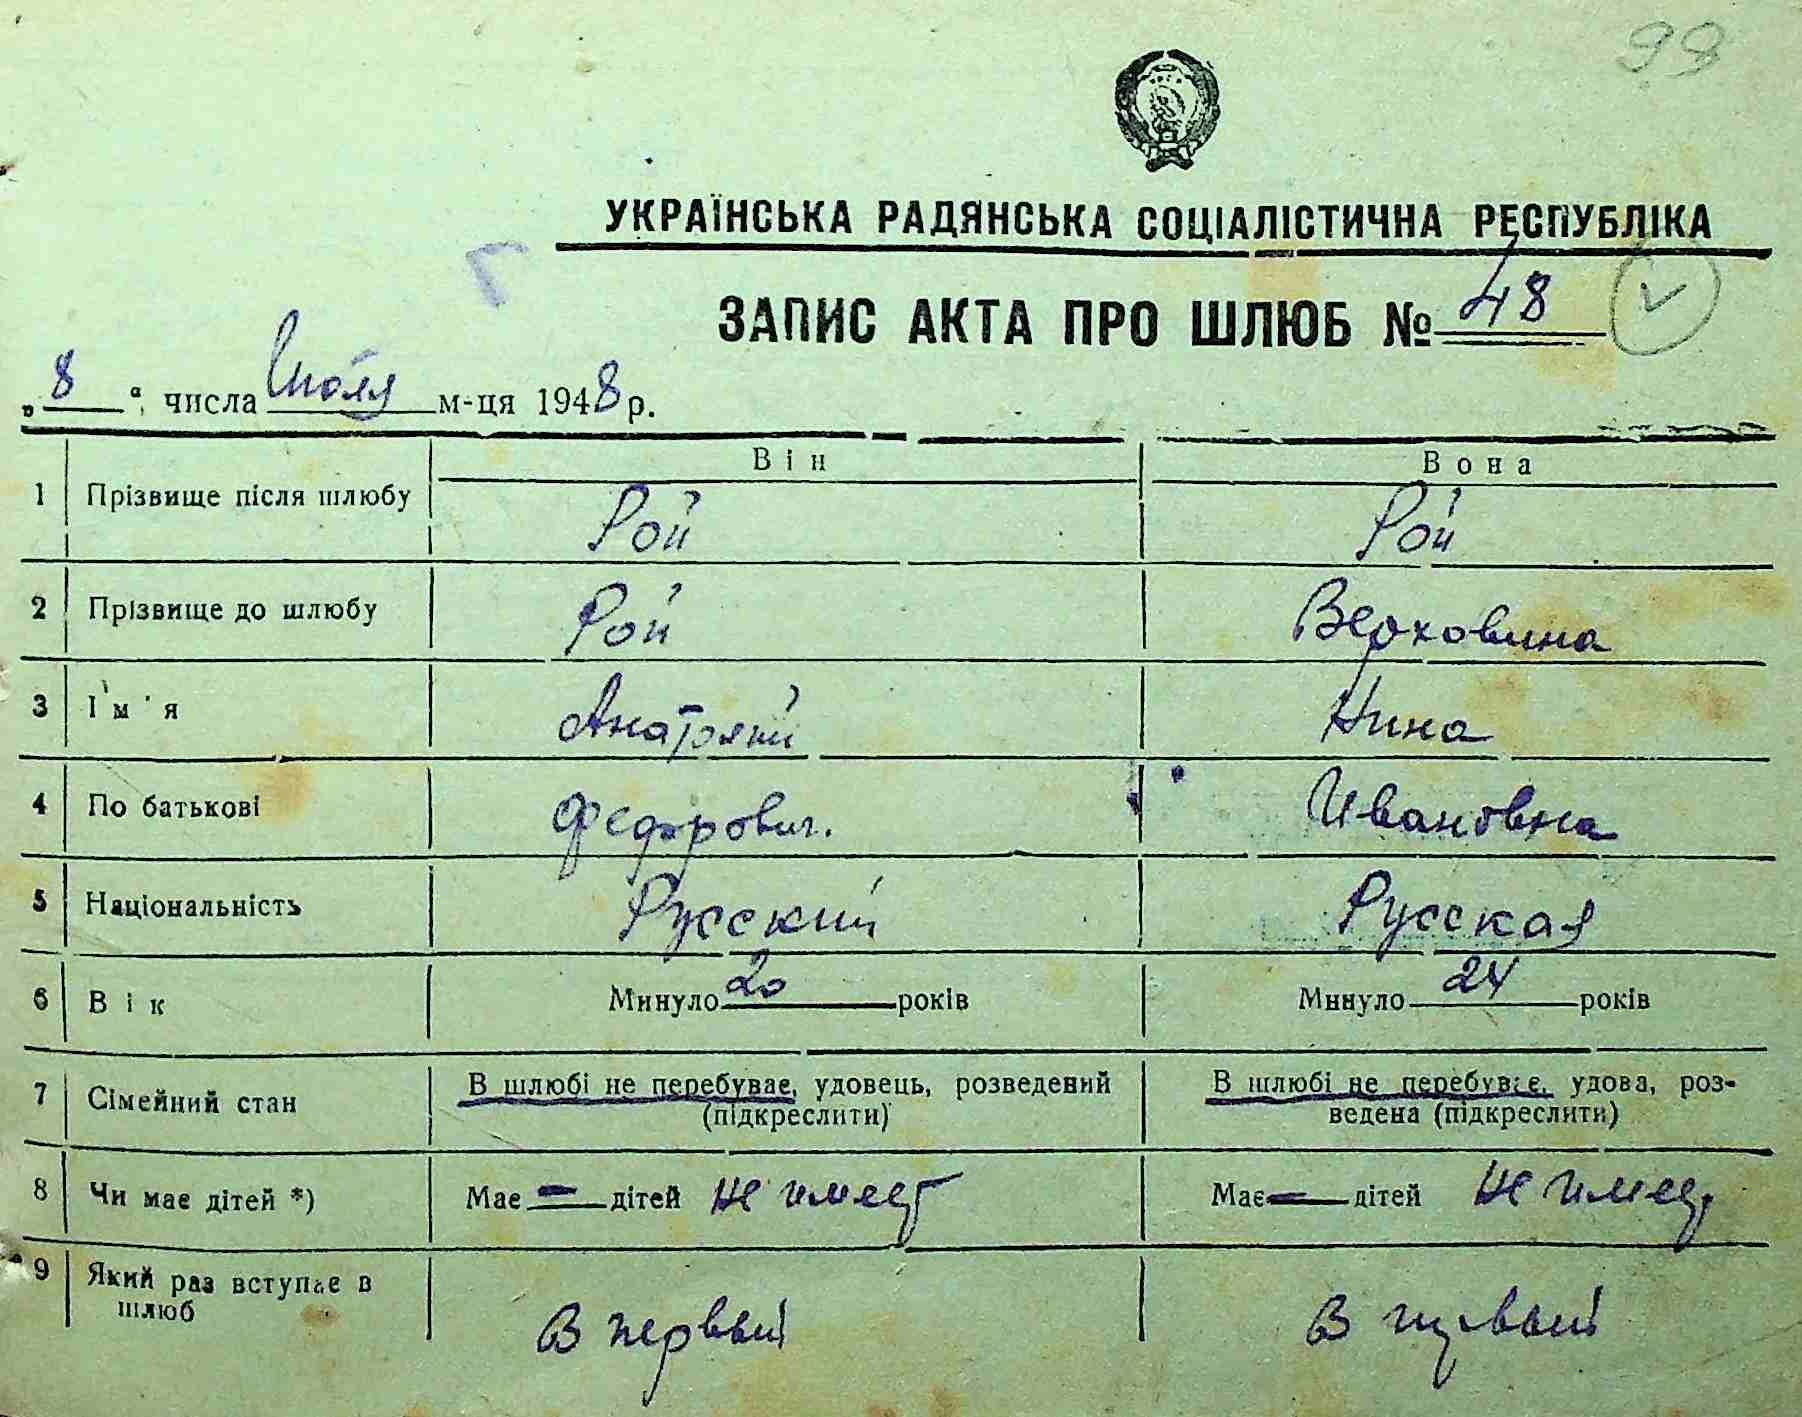 99
УКРАЇНСЬКА РАДЯНСЬКА СОЦІАЛІСТИЧНА РЕСПУБЛІКА
ЗАПИС АКТА ПРО ШЛЮБ № 48
„8“ числа Июля м-ця 1948 р.
Він Вона
1 Прізвище після шлюбу Рой Рой
2 Прізвище до шлюбу Рой Верховина
3 Ім'я Анатолий Нина
4 По батькові Федорович. Ивановна
5 Національність Русский Русская
6 Вік Минуло 20 років Минуло 24 років
7 Сімейний стан В шлюбі не перебуває, удовець, розведений (підкреслити) В шлюбі не перебуває, удова, роз-
ведена (підкреслити)
8 Чи має дітей *) Має — дітей не имеет Має — дітей не имеет
9 Який раз вступає в
шлюб В первый В первый